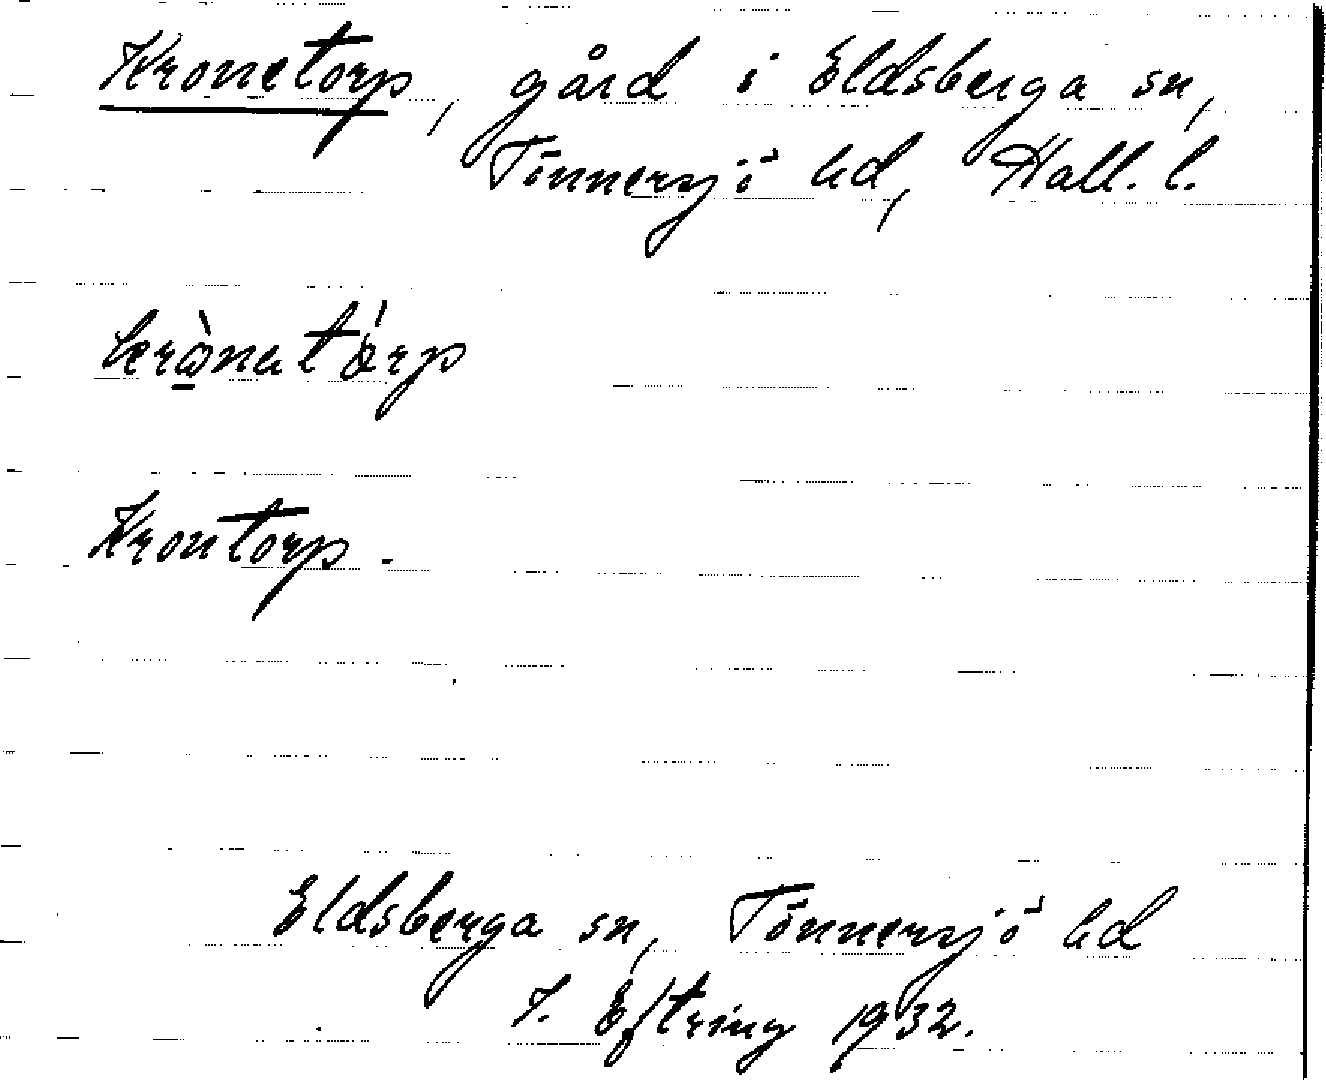 Kronetorp, gård i Eldsberga sn,
Tönnersjö hd, Hall. l.
krὼ̲natά̀rp
Krontorp.
Eldsberga sn, Tönnersjö hd
J. Eftring 1932.